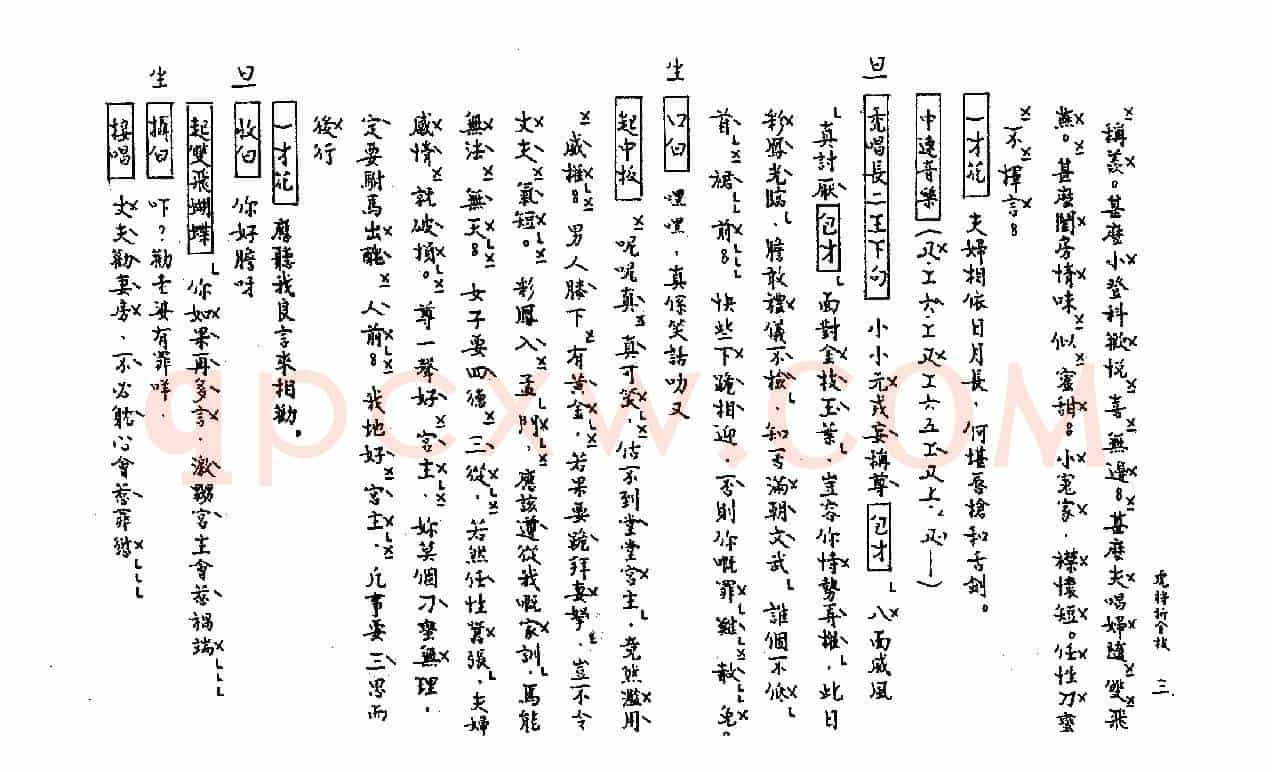 虎將折金枝 三
稱羨。甚麼小登科歡悅喜無邊。甚麼夫唱婦隨雙飛
燕。甚麼閨房情味似蜜甜。小冤家、襟懷短。任性刁蠻
不揮言。
一才花 夫婦相依日月長、何堪唇槍和舌劍。
中速音樂 (
旦 禿唱長二王下句 小小元戎妄稱尊 包才 八面威風
真討厭 包才 面對金枝玉葉、豈容你恃勢弄權、此日
彩鳳光臨、膽敢禮儀不檢、知否滿朝文武、誰個不低
首裙前。快些下跪相迎、否則你嘅罪難赦免。
生 口白 哩哩,真係笑話叻又
起中板 呢呢真真可笑、估不到堂堂宮主、竟然濫用
威權。男人膝下有黃金、若果要跪拜妻孥、豈不令
丈夫氣短。彩鳳入孟門,應該遵從我嘅家訓、焉能
無法無天。女子要四德三從、若然任性囂張、夫婦
感情就破損。尊一聲好宮主、妳莫個刁蠻無理、
定要駙馬出醜人前。我地好宮主、凡事要三思而
後行
一才花 應聽我良言來相勸。
旦 收白 你好膽呀
起雙飛蝴蝶 你如果再多言、激嬲宮主會惹禍端
生 攝白 吓?勸老婆有罪咩、
接唱 丈夫勸妻房、不必耽心會惹罪愆
qpcxw.COM